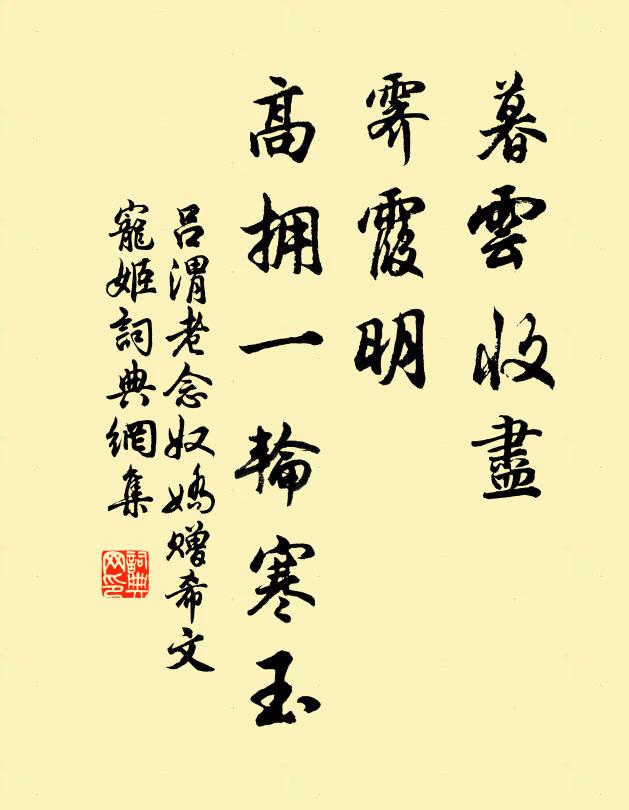 暮雲收盡
霽霞明
高拥一輪寒玉
吕渭老念奴嬌赠希文
寵姬詞典網集
詞典
网印